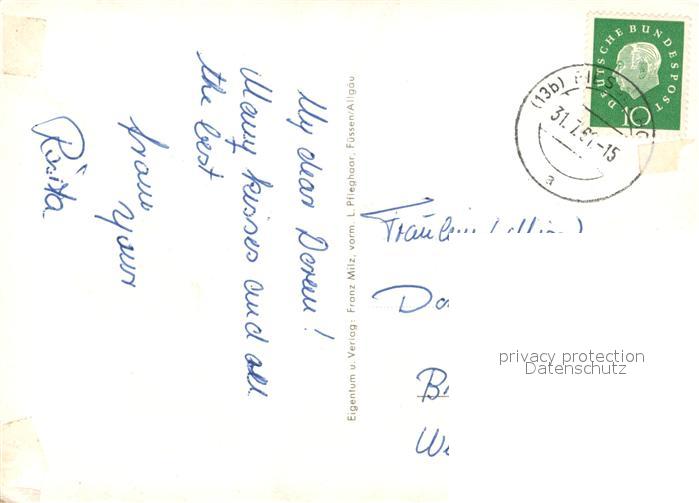 My dear Doreen!
Many kisses and all
the best
from your
Rosita
Eigentum u. Verlag: Franz Milz, vorm. L. Pfleghaar, Füssen/Allgäu
DEUTSCHE BUNDESPOST
10
(13b)
31.7.6 -15
a
Fräulein (Miss)
Do
B
We
privacy protection
Datenschutz